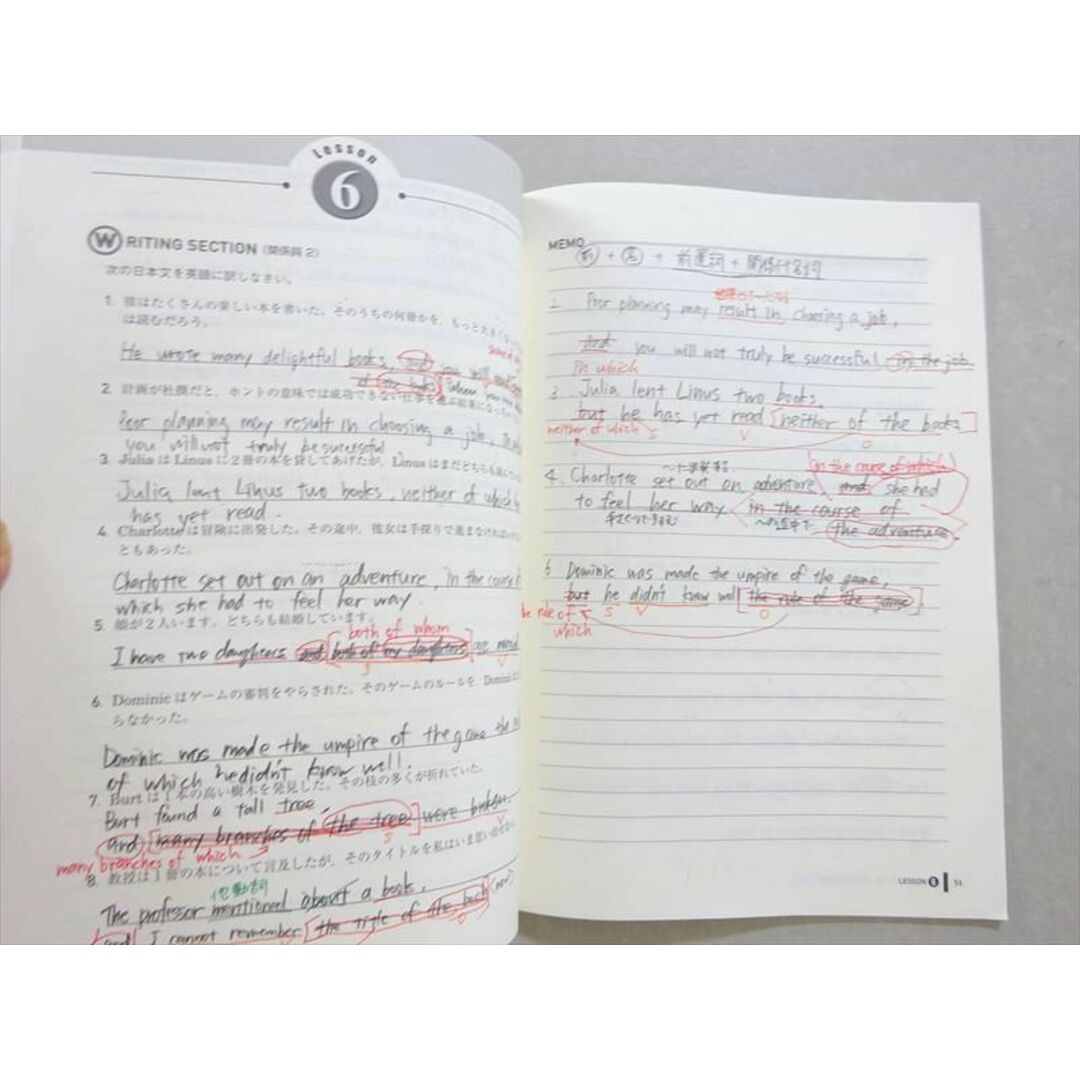 Lesson
6
WRITING SECTION (関係詞 2)
次の日本文を英語に訳しなさい。
1. 彼はたくさんの楽しい本を書いた。そのうちの何冊かを、もっと大きくなった
は読むだろう。
He wrote many delightful books, and you will
of the books
2. 計画が杜撰だと、ホントの意味では成功できない仕事を選ぶ結果になった
Poor planning may result in choosing a job, in
you will not truly be successful
3. Julia は Linus に2冊の本を貸してあげたが、Linus はまだどちらも読んで
Julia lent Linus two books, neither of which he
has yet read.
4. Charlotte は冒険に出発した。その途中、彼女は手探りで進まなければ
ともあった。
Charlotte set out on an adventure, in the course
which she had to feel her way.
5. 娘が2人います。どちらも結婚しています。
both of whom
I have two daughters and both of my daughters are
S V
6. Dominic はゲームの審判をやらされた。そのゲームのルールを、Dominic は
らなかった。
Dominic was made the umpire of the game the
of which he didn't know well.
7. Burt は1本の高い樹木を発見した。その枝の多くが折れていた。
Burt found a tall tree,
and many branches of the tree were broken.
S V
many branches of which
8. 教授は1冊の本について言及したが、そのタイトルを私はいま思い出せない
他動詞
The professor mentioned about a book, (now)
and I cannot remember the title of the book
MEMO
前 + 名 + 前置詞 + 関係代名詞
2 Poor planning may result in choosing a job,
and you will not truly be successful in the job
in which
3 Julia lent Linus two books.
but he has yet read [neither of the books]
neither of which S V O
in the course of which
4. Charlotte set out on an adventure and she had
to feel her way in the course of
〜の途中で
the adventure.
6 Dominic was made the umpire of the game,
but he didn't know well [the rule of the game]
the rule of S V O
which
LESSON 6 51